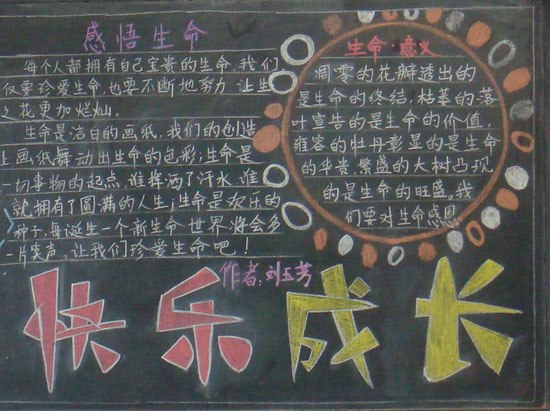 感悟生命
每个人都拥有自己宝贵的生命,我们
仅要珍爱生命,也要不断地努力,让生
之花更加烂灿。
生命是洁白的画纸,我们的创造
让画纸舞动出生命的色彩;生命是
一切事物的起点,谁挥洒了汗水,谁
就拥有了圆满的人生;生命是欢乐的
种子,每诞生一个新生命,世界将会多
一片笑声。让我们珍爱生命吧!
作者:刘玉芳
生命·意义
凋零的花瓣透出的
是生命的终结,枯萎的落
叶宣告的是生命的价值,
雍容的牡丹彰显的是生命
的华贵,繁盛的大树凸现
的是生命的旺盛。我
们要对生命感恩
快乐成长